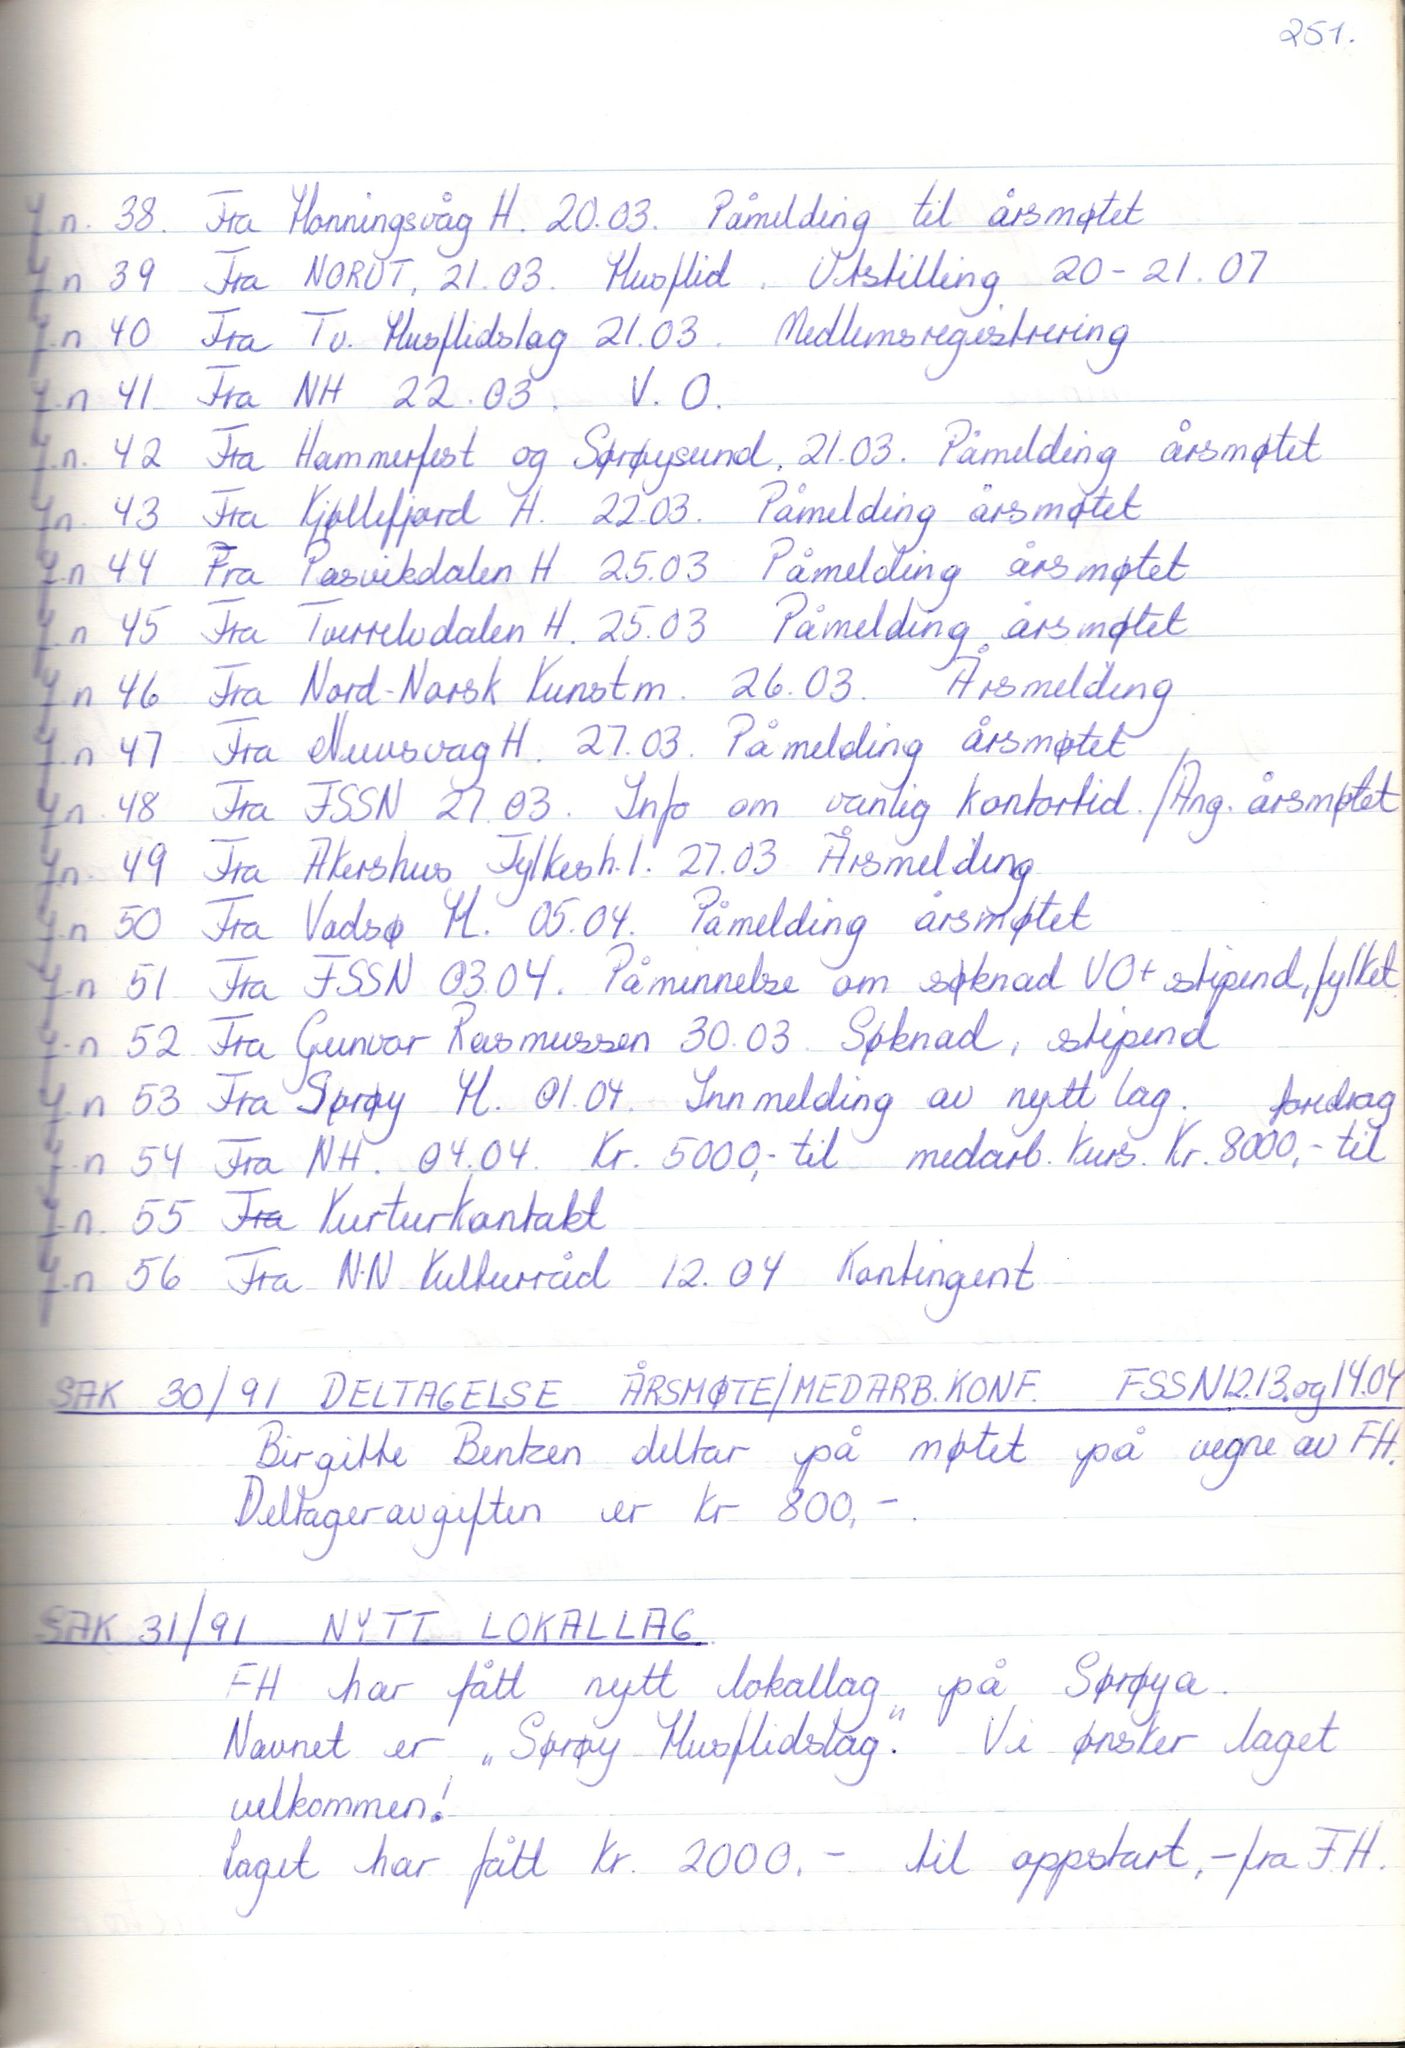 251.
J.n. 38. Fra Honningsvåg H. 20.03. Påmelding til årsmøtet
J.n 39 Fra NORUT, 21.03. Husflid. Utstilling 20-21.07
J.n 40 Fra Tv. Husflidslag 21.03. Medlemsregistrering
J.n 41 Fra NH 22.03. V.O.
J.n. 42 Fra Hammerfest og Sørøysund, 21.03. Påmelding årsmøtet
J.n. 43 Fra Kjøllefjord H. 22.03. Påmelding årsmøtet
J.n 44 Fra Pasvikdalen H 25.03 Påmelding årsmøtet
J.n 45 Fra Tverrelvdalen H. 25.03 Påmelding årsmøtet
J.n 46 Fra Nord-Norsk Kunstm. 26.03. Årsmelding
J.n 47 Fra Nuvsvåg H. 27.03. Påmelding årsmøtet
J.n. 48 Fra FSSN 27.03. Info om vanlig kontortid./Ang. årsmøtet
J.n. 49 Fra Akershus Fylkesh.l. 27.03 Årsmelding
J.n 50 Fra Vadsø H. 05.04. Påmelding årsmøtet
J.n 51 Fra FSSN 03.04. Påminnelse om søknad VO+ stipend, fylket
J.n 52 Fra Gunvor Rasmussen 30.03. Søknad, stipend
J.n 53 Fra Sørøy H. 01.04. Innmelding av nytt lag. foredrag
J.n 54 Fra NH. 04.04. Kr. 5000,- til medarb. kurs. Kr. 8000,- til
J.n. 55 Fra Kurturkontakt
J.n 56 Fra N.N Kulturråd 12.04 Kontingent
SAK 30/91 DELTAGELSE ÅRSMØTE/MEDARB.KONF. FSSN 12.13.og 14.04
Birgitte Bentzen deltar på møtet på vegne av FH.
Deltageravgiften er kr 800,-.
SAK 31/91 NYTT LOKALLAG
FH har fått nytt lokallag på Sørøya.
Navnet er „Sørøy Husflidslag". Vi ønsker laget
velkommen!
Laget har fått kr. 2000.- til oppstart,- fra F.H.